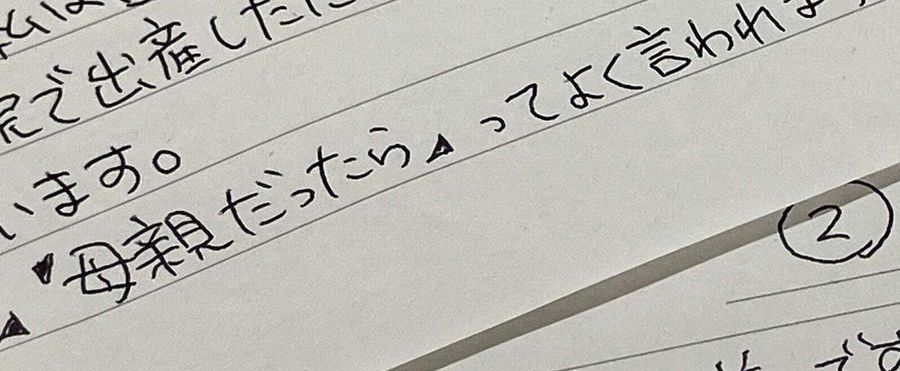 院で出産した
います。
"母親だったら"ってよく言われま
②
です